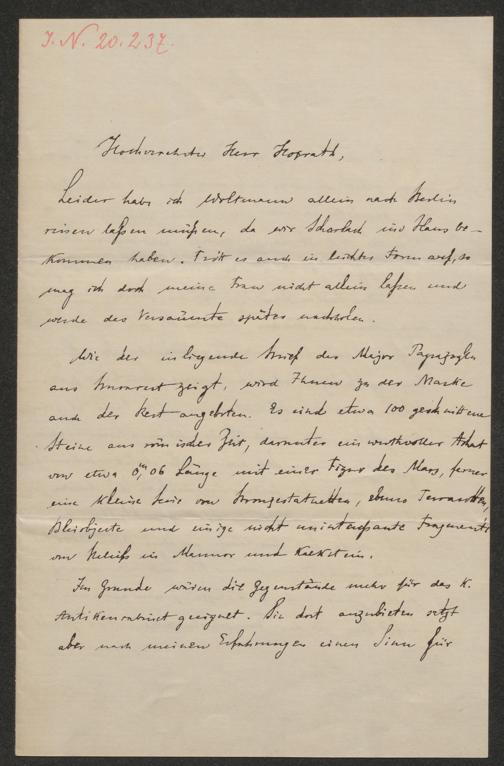 J. N. 20.237.
Hochverehrter Herr Hofrath,
Leider habe ich Woltmann allein nach Berlin
reisen laßen müßen, da wir Scharlach ins Haus be-
kommen haben. Tritt es auch in leichter Form auf, so
mag ich doch meine Frau nicht allein laßen und
werde das Versäumte später nachholen.
Wie der inliegende Brief des Major
aus zeigt, wird Ihnen zu der Maske
auch der Rest angeboten. Es sind etwa 100 geschnittene
Steine aus römischer Zeit, darunter ein werthvoller Achat
von etwa 0,m 06 Länge mit einer Figur des Mars, ferner
eine kleine Serie von Bronzestatuetten, ebenso Terracotten,
Bleiobjecte und einige nicht uninteressante Fragmente
von Reliefs in Marmor und Kalkstein.
Im Grunde wären die Gegenstände mehr für das K.
Antikencabinet geeignet. Sie dort anzubieten setzt
aber nach meinen Erfahrungen einen Sinn für